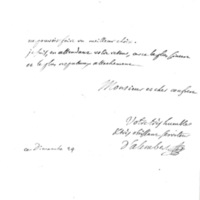 en pouvoir faire un meilleur choix.
je suis, en attendant votre retour, avec la plus sincere
et le plus respectueux attachement
Monsieur et cher confrere
Votre très humble
et très obéissant serviteur
D'alembert
ce Dimanche 29